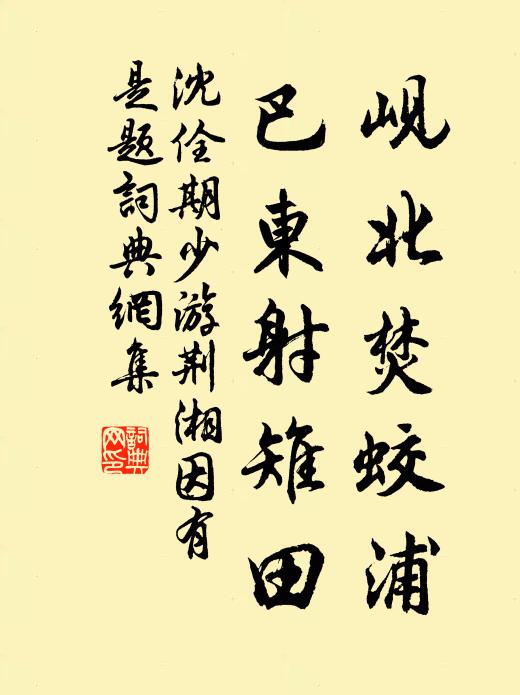 峴北焚蛟浦
巴東射雉田
沈佺期少游荆湘因有
是題詞典網集
詞典
网印